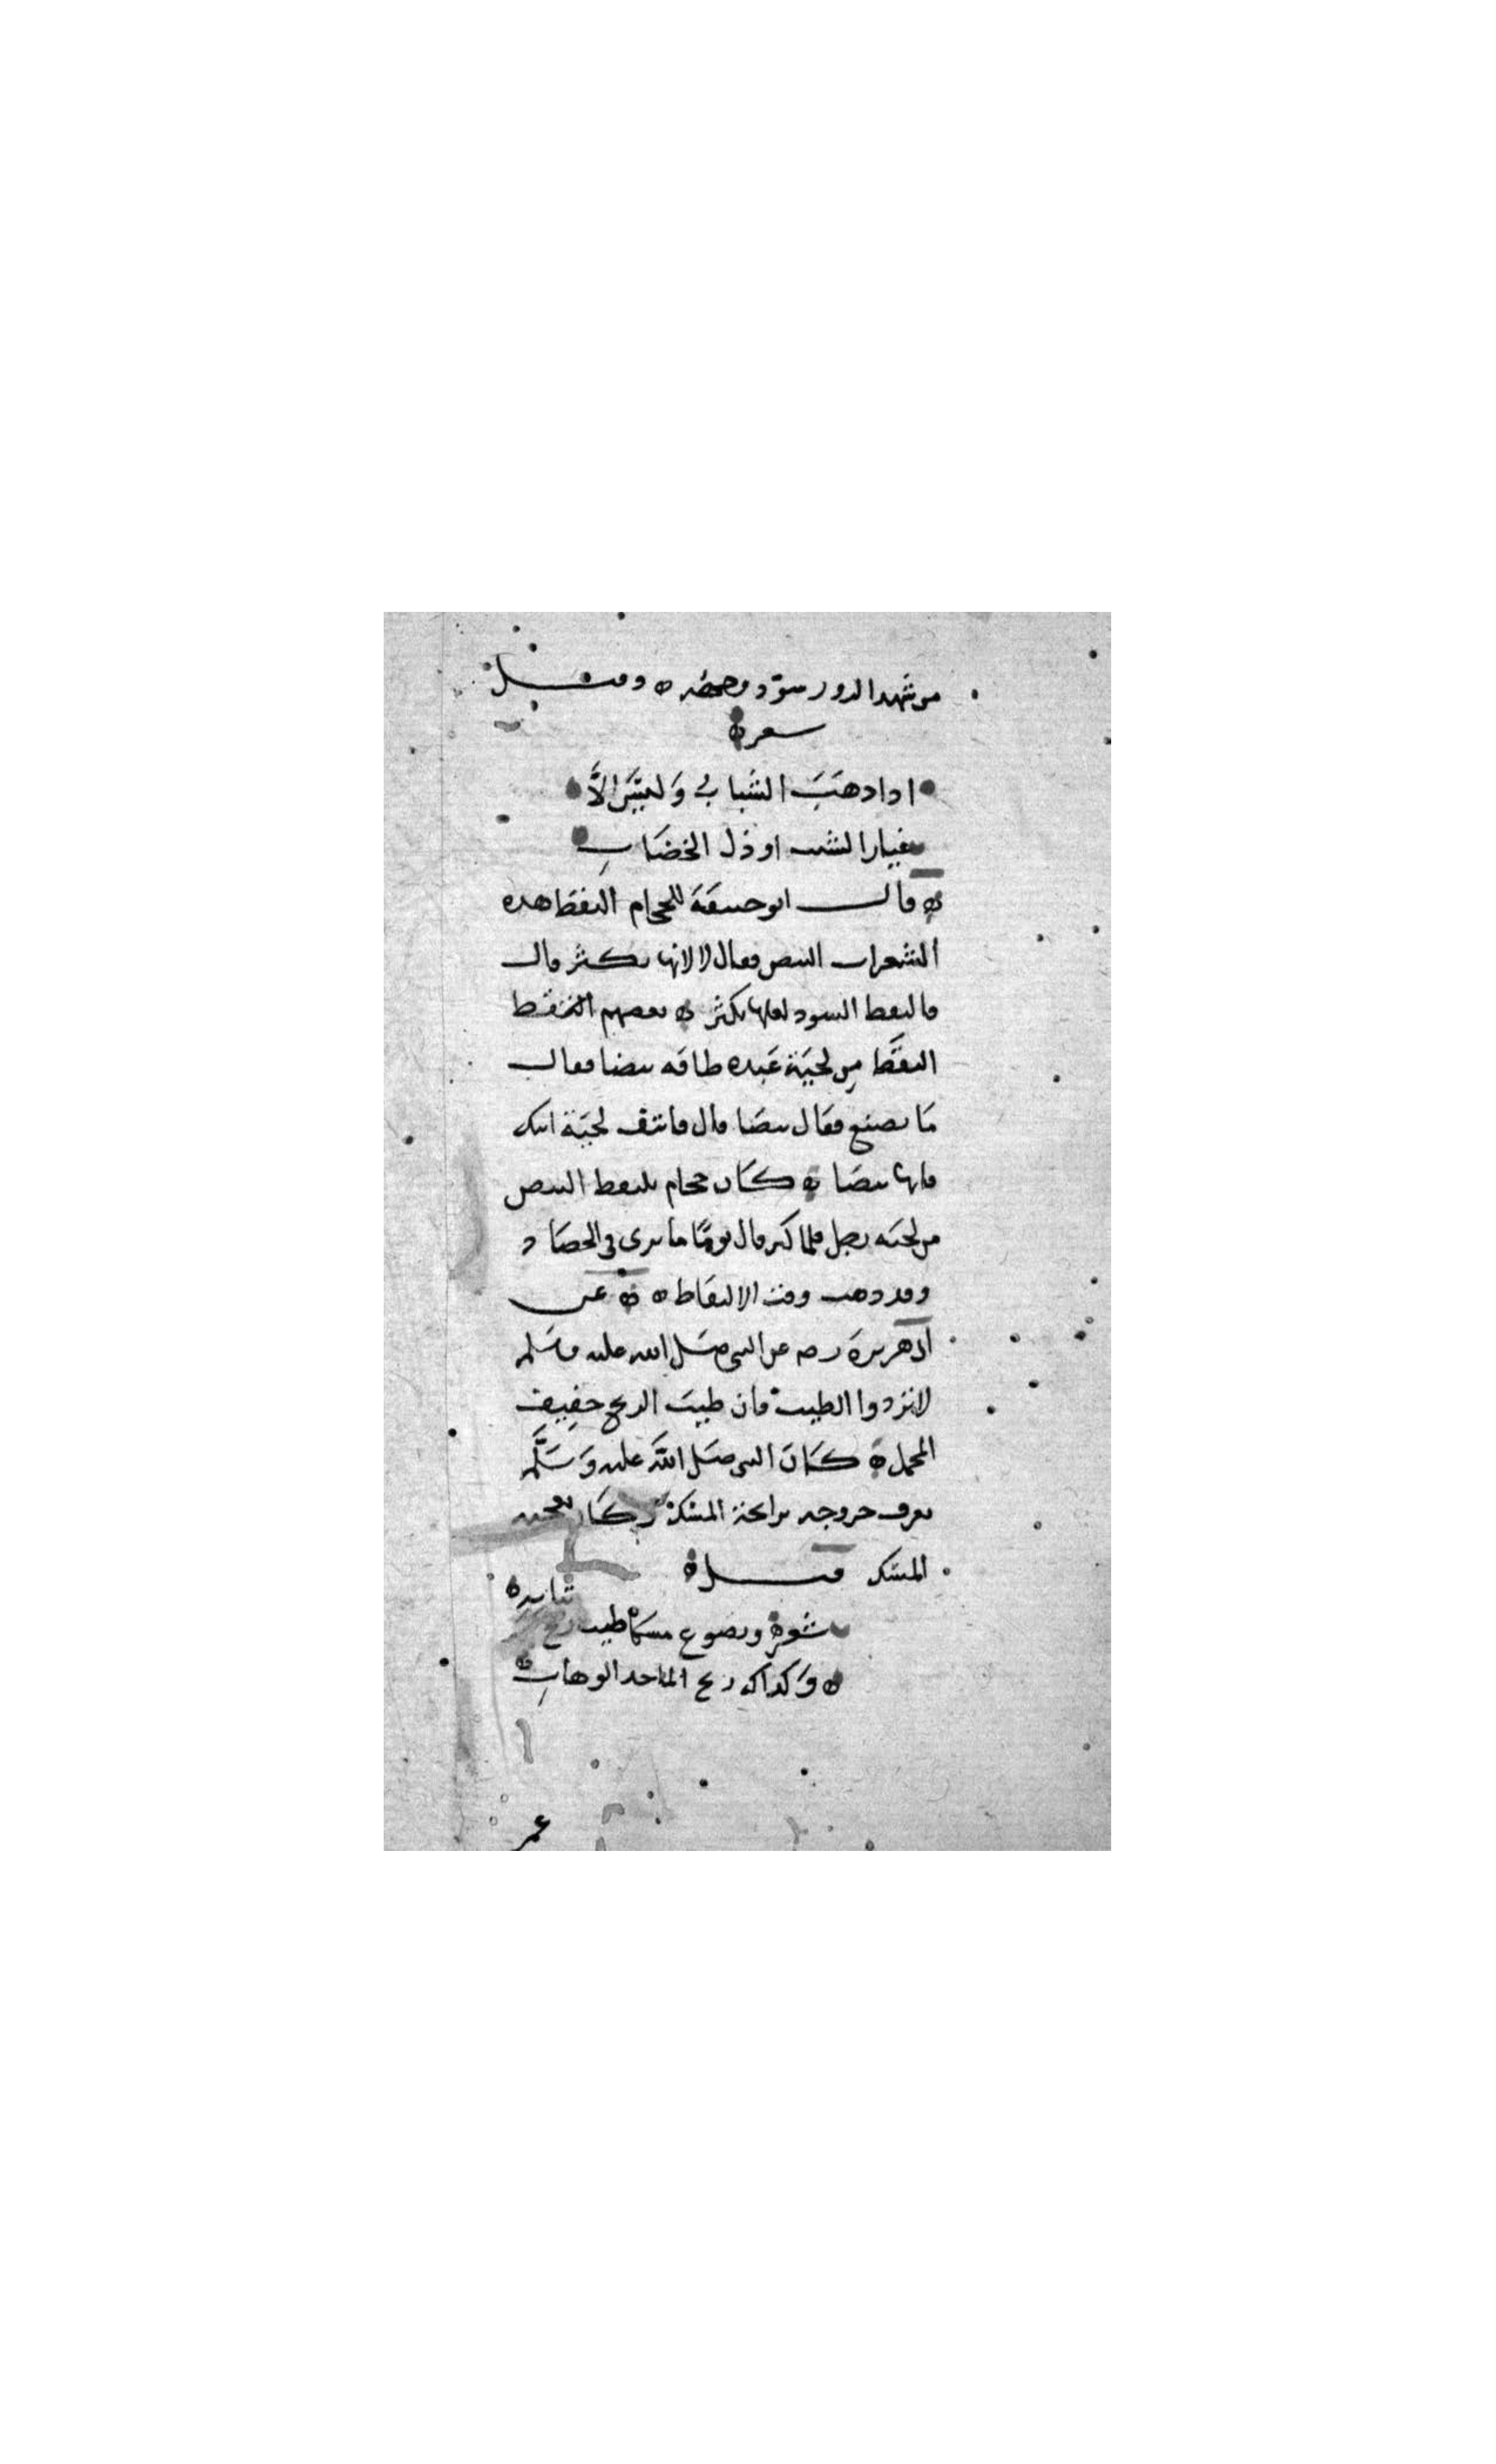 من شهد الدور سوّد وحمّره وقيل
شعره
اذا ذهب الشباب وليس الّا
غبار الشيب او ذل الخضاب
قال ابو حنيفة للحجام القط هذه
الشعرات البيض فقال لا لانها تكثر قال
فالقط السود لعلها تكثر ه بعضهم
القط من لحية عبده طاقه بيضا فقال
ما تصنع فقال بيضا قال فانتف لحية ابيك
فانها بيضا ه كان حجام يلقط البيض
من لحية رجل فلما كثر قال يومًا ما ترى في الحصاد
وقد ذهب وقت الالتقاط ه ه عن
ابي هريرة رضه عن النبي صلى الله عليه وسلم
لا تردوا الطيب فان طيب الريح خفيف
المحمل ه كان النبي صلى الله عليه وسلم
يعرف خروجه برائحة المسك وكان يعجبه
المسك قيل ه
ويضوع مسكا طيب ريح ثنائه
وكذاك ريح الماجد الوهاب
عمر